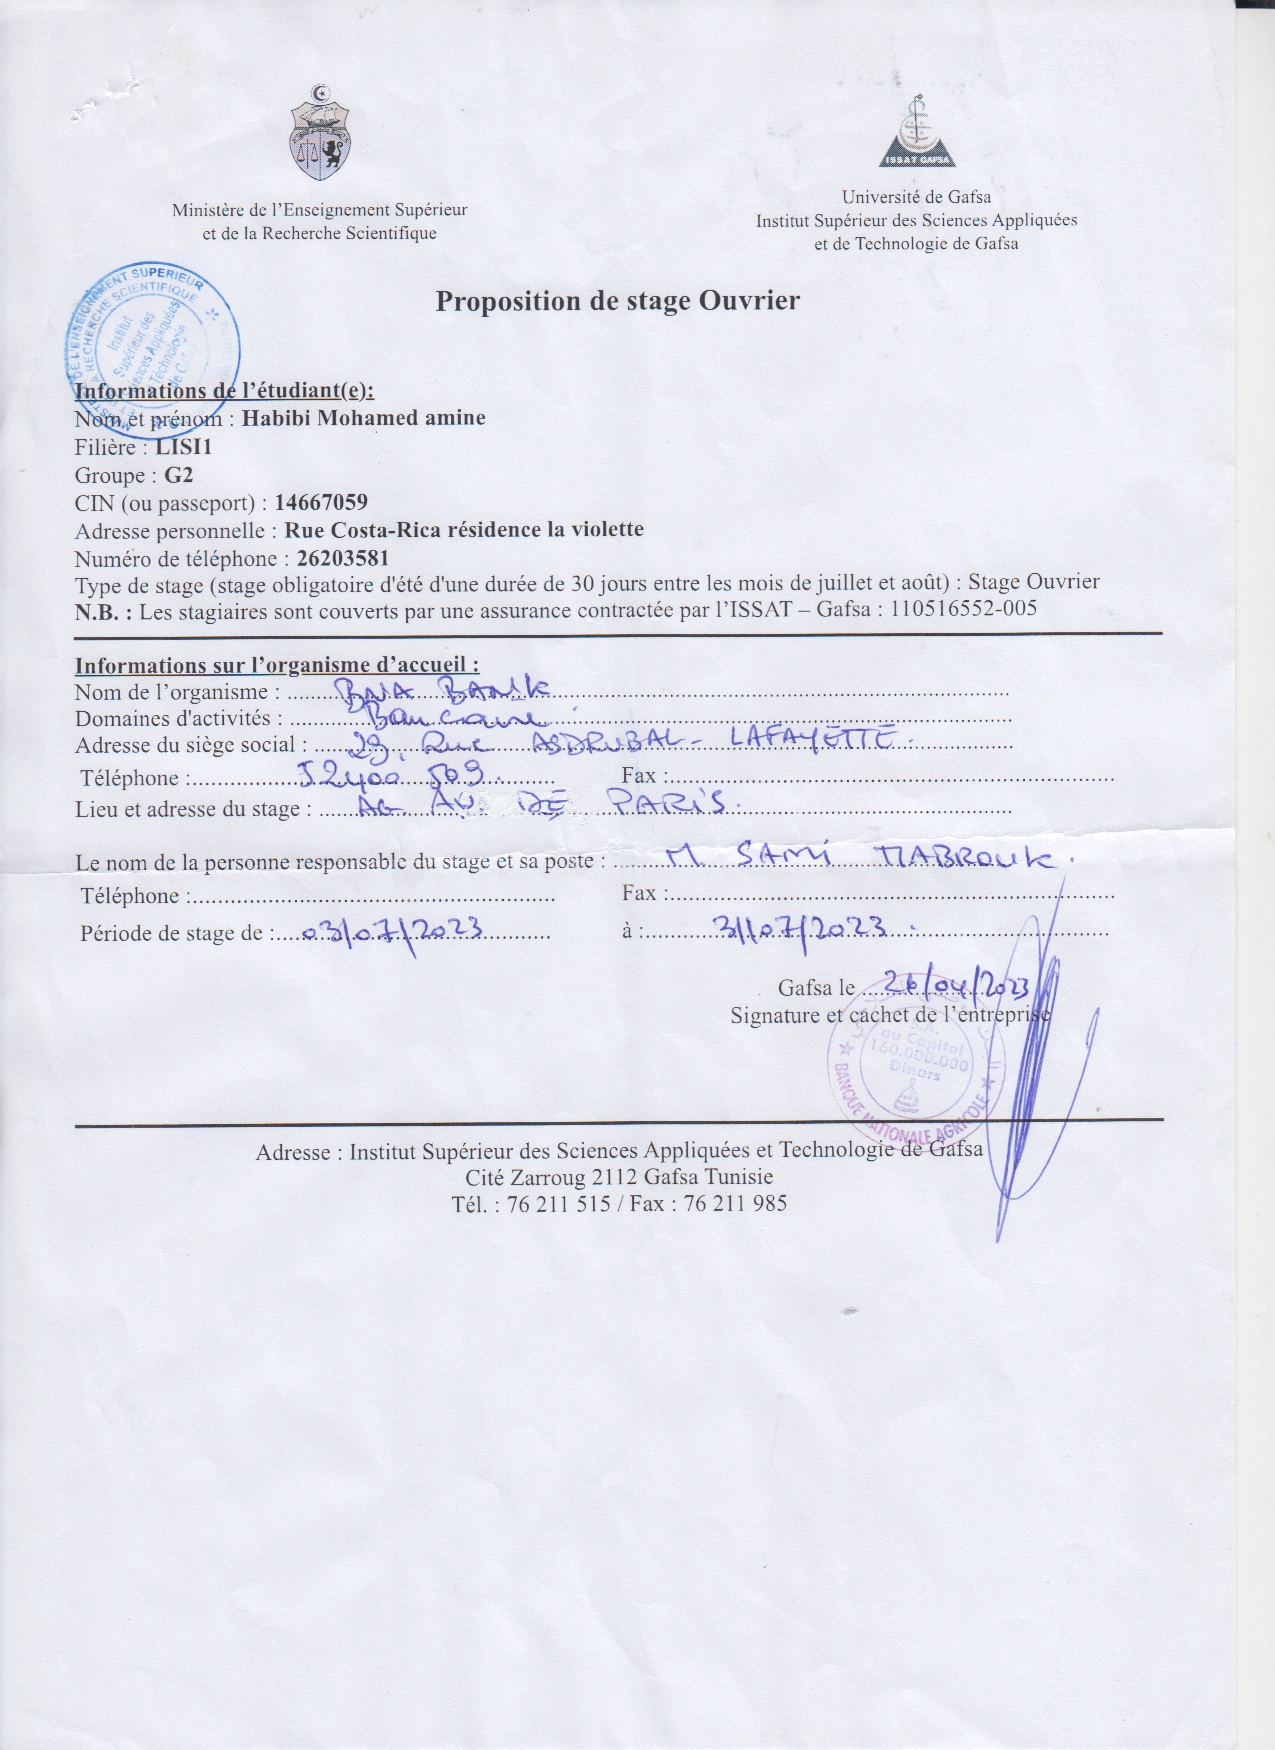 ISSAT GAFSA
Ministère de l'Enseignement Supérieur
et de la Recherche Scientifique
Université de Gafsa
Institut Supérieur des Sciences Appliquées
et de Technologie de Gafsa
Proposition de stage Ouvrier
Institut
Supérieur des
Sciences Appliquées
Technologie
Informations de l'étudiant(e):
Nom et prénom : Habibi Mohamed amine
Filière : LISI1
Groupe : G2
CIN (ou passeport) : 14667059
Adresse personnelle : Rue Costa-Rica résidence la violette
Numéro de téléphone : 26203581
Type de stage (stage obligatoire d'été d'une durée de 30 jours entre les mois de juillet et août) : Stage Ouvrier
N.B. : Les stagiaires sont couverts par une assurance contractée par l'ISSAT – Gafsa : 110516552-005
Informations sur l'organisme d'accueil :
Nom de l'organisme : BNA BANK
Domaines d'activités : Bancaire
Adresse du siège social : 29, Rue ASDRUBAL - LAFAYETTE.
Téléphone : 52400 509. Fax :
Lieu et adresse du stage : AG. AV. DE PARIS.
Le nom de la personne responsable du stage et sa poste : M. SAMI MABROUK.
Téléphone : Fax :
Période de stage de : 03/07/2023 à : 31/07/2023.
Gafsa le 26/04/2023
Signature et cachet de l'entreprise
S.A.
au Capital
160.000.000
Dinars
BANQUE NATIONALE AGRICOLE
Adresse : Institut Supérieur des Sciences Appliquées et Technologie de Gafsa
Cité Zarroug 2112 Gafsa Tunisie
Tél. : 76 211 515 / Fax : 76 211 985